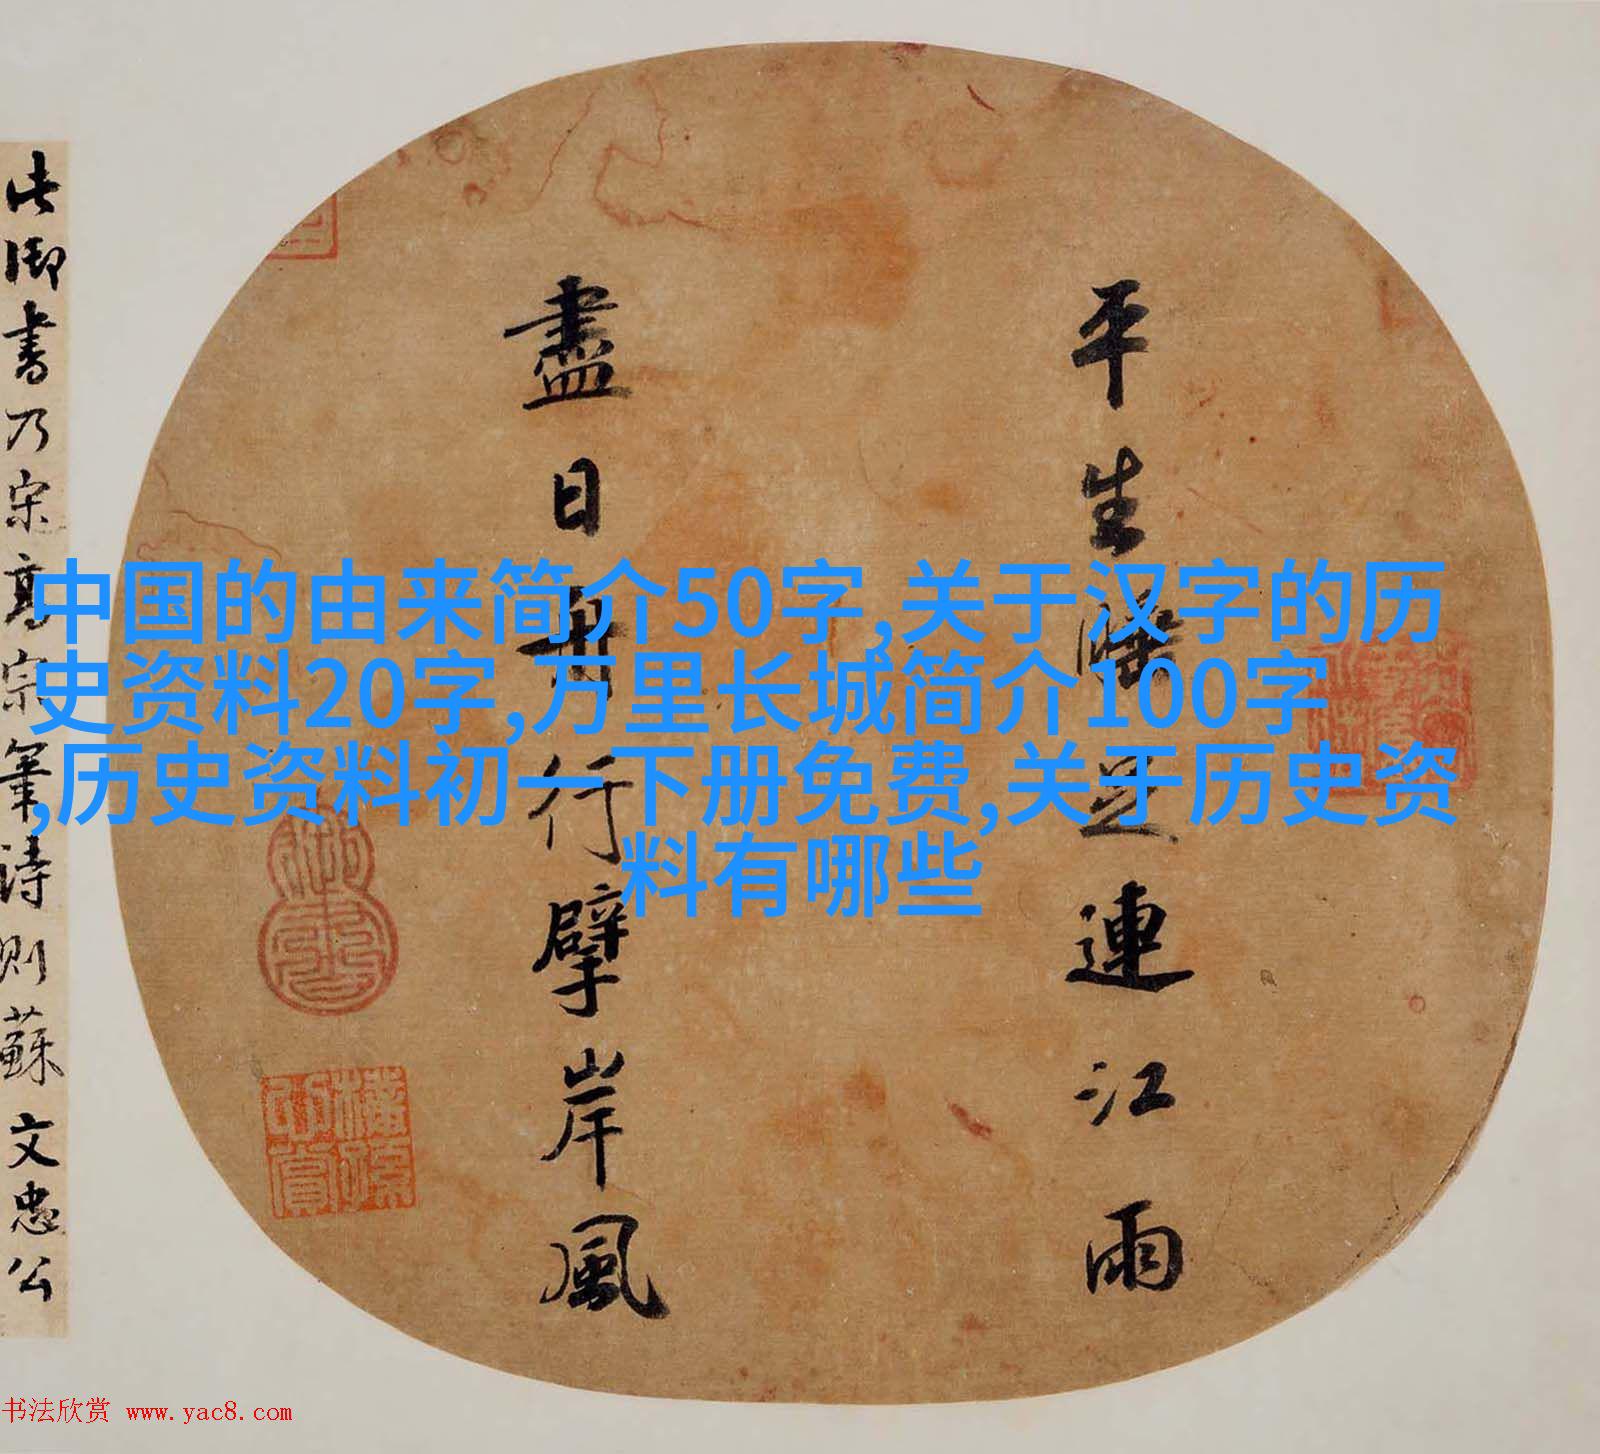 平生睡足連江雨
盡日舟行擘岸風
此御書乃宋高宗筆詩則蘇文忠公
中国的由来简介50字,关于汉字的历
史资料20字,万里长城简介100字
,历史资料初一下册免费,关于历史资
料有哪些
书法欣赏 www.yac8.com